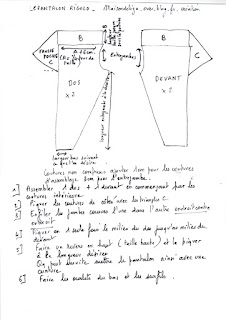 PANTALON RIGOLO - Maisondelija.over-blog.fr. création
B
B
FAUSSE
POCHE
C
C
Entrejambes
DOS
x 2
DEVANT
x 2
longueur bas suivant
Coutures non comprises ajouter 1cm pour les coutures
d'assemblage 2cm pour l'entrejambe.
1] Assembler 1 dos + 1 devant en commençant par les
coutures intérieures
2] Piquer les coutures de côtés avec les triangles C.
3] Enfiler les jambes cousues l'une dans l'autre endroit contre
endroit
4] Piquer en 1 seule fois le milieu du dos jusqu'au milieu du
devant
5] Faire un revers en haut (taille haute) et le piquer
à la longueur désirée
On peut ensuite mettre le pantalon ainsi avec une
ceinture
6] Faire les ourlets du bas et les